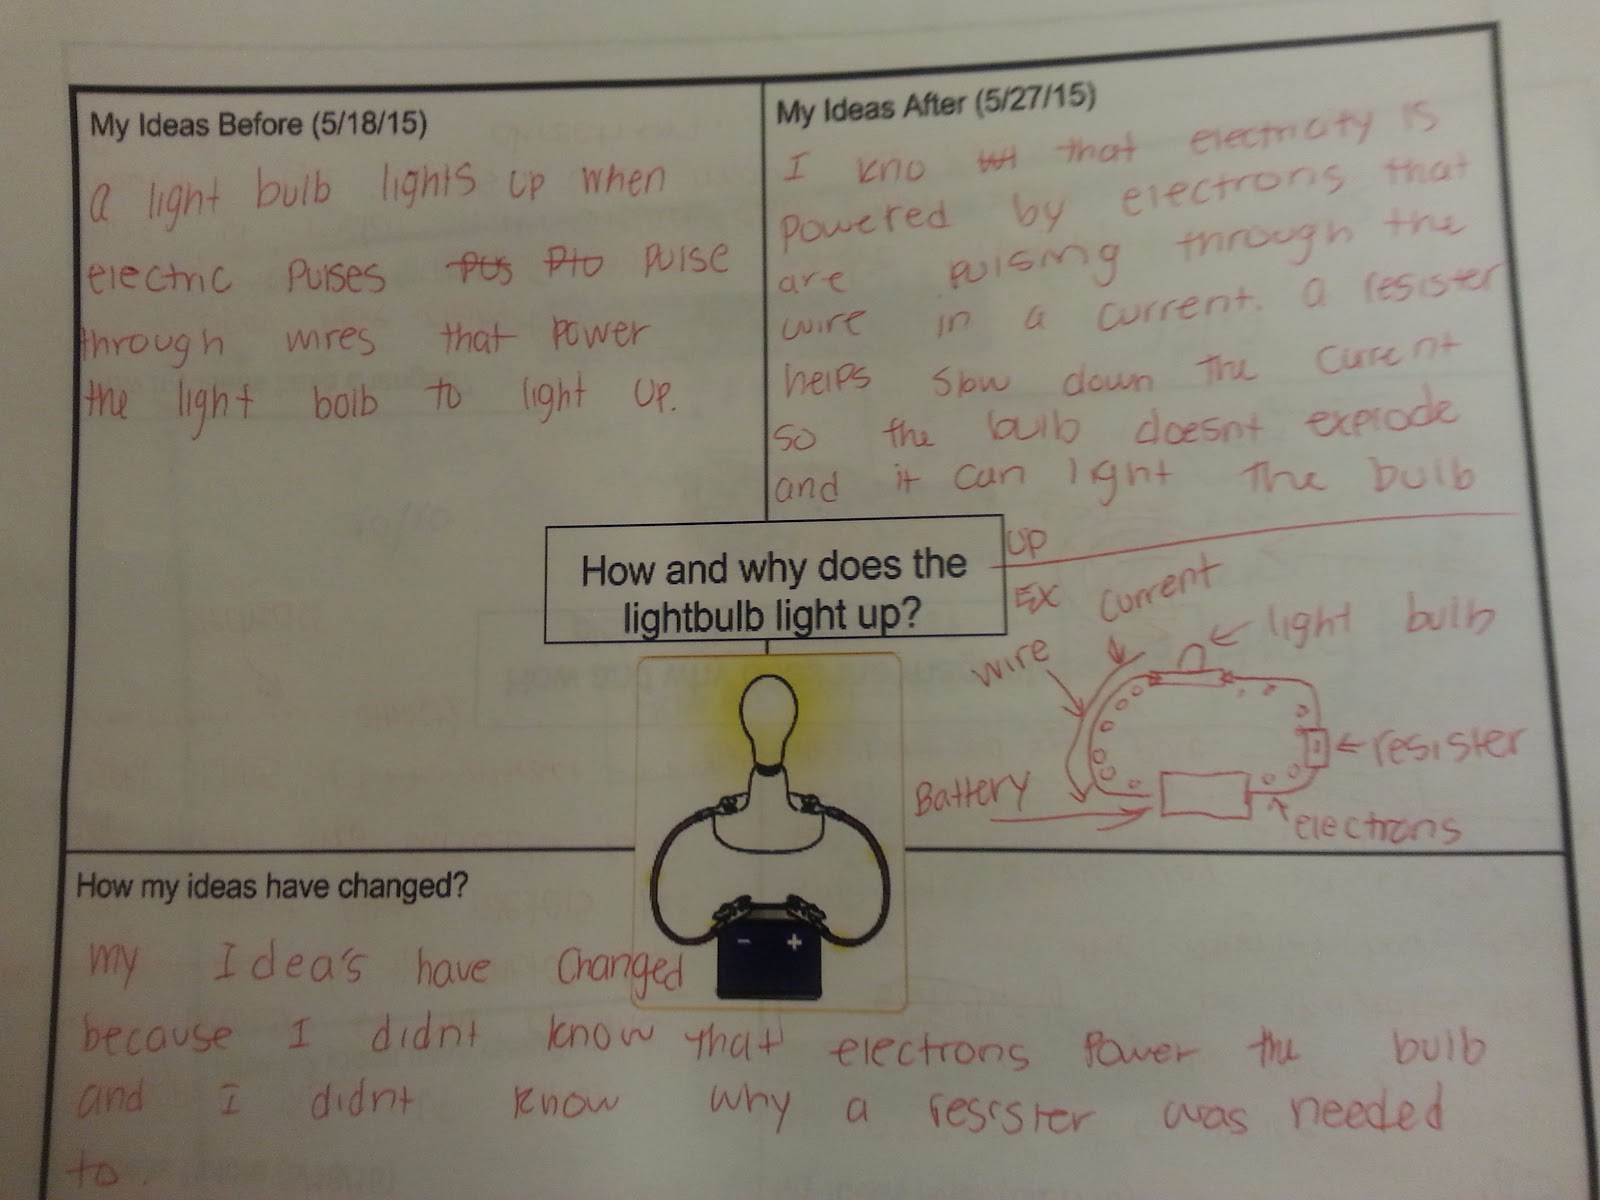 My Ideas Before (5/18/15)
a light bulb lights up when
electric pulses pus pto pulse
through wires that power
the light bolb to light up.
My Ideas After (5/27/15)
I kno that electricity is
powered by electrons that
are pulsing through the
wire in a current. a resister
helps slow down the current
so the bulb doesnt explode
and it can light the bulb
up
How and why does the
lightbulb light up?
EX current
wire
light bulb
resister
Battery
electrons
- +
How my ideas have changed?
my Idea's have changed
because I didnt know that electrons power the bulb
and I didnt know why a resister was needed
to.